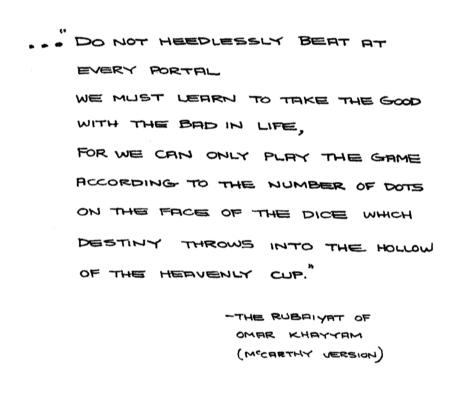 ..."DO NOT HEEDLESSLY BEAT AT
EVERY PORTAL
WE MUST LEARN TO TAKE THE GOOD
WITH THE BAD IN LIFE,
FOR WE CAN ONLY PLAY THE GAME
ACCORDING TO THE NUMBER OF DOTS
ON THE FACE OF THE DICE WHICH
DESTINY THROWS INTO THE HOLLOW
OF THE HEAVENLY CUP."
-THE RUBAIYAT OF
OMAR KHAYYAM
(McCARTHY VERSION)